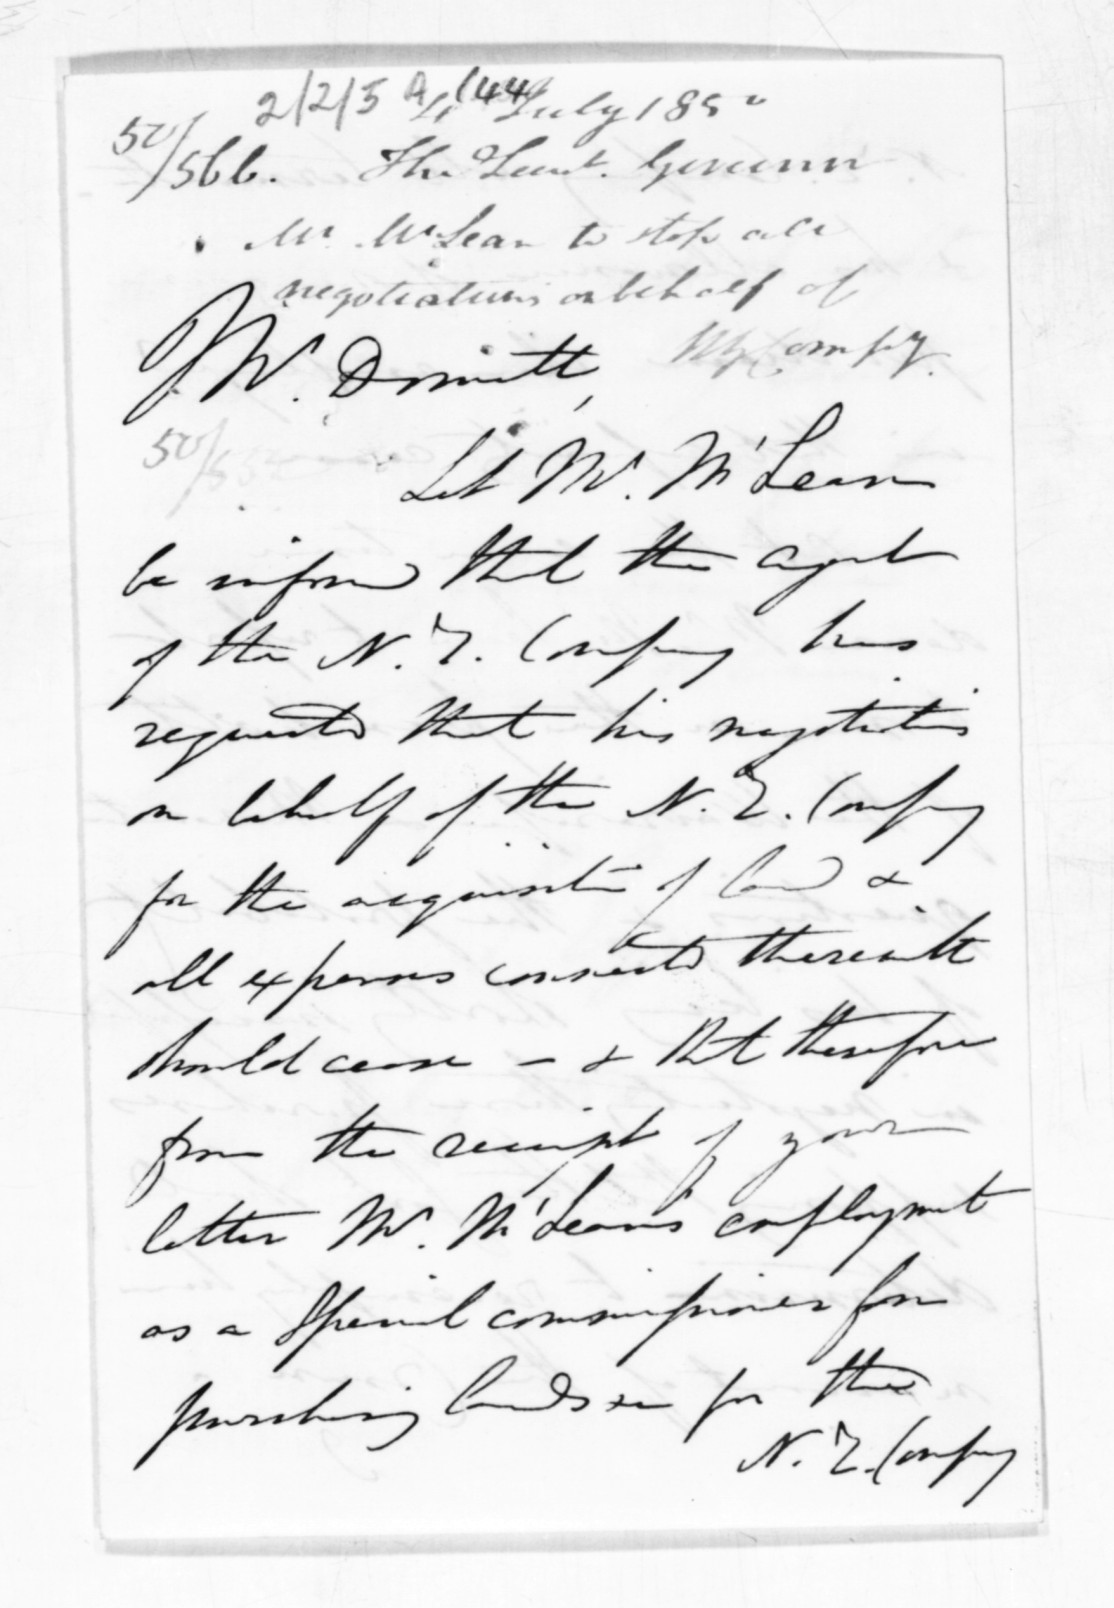 2/2/5 A (44)
4 July 1850
50/566. The Lieut. Governor
Mr. McLean to stop all
negotiations on behalf of
NZ Compy.
Mr. Domett,
50/
Let Mr. McLean
be informed that the agent
of the N.Z. Company has
requested that his negotiations
on behalf of the N.Z. Company
for the acquisition of land &
all expenses connected therewith
should cease – & that therefore
from the receipt of your
letter Mr. McLean's employment
as a Special commissioner for
purchasing lands &c for the
N.Z. Company